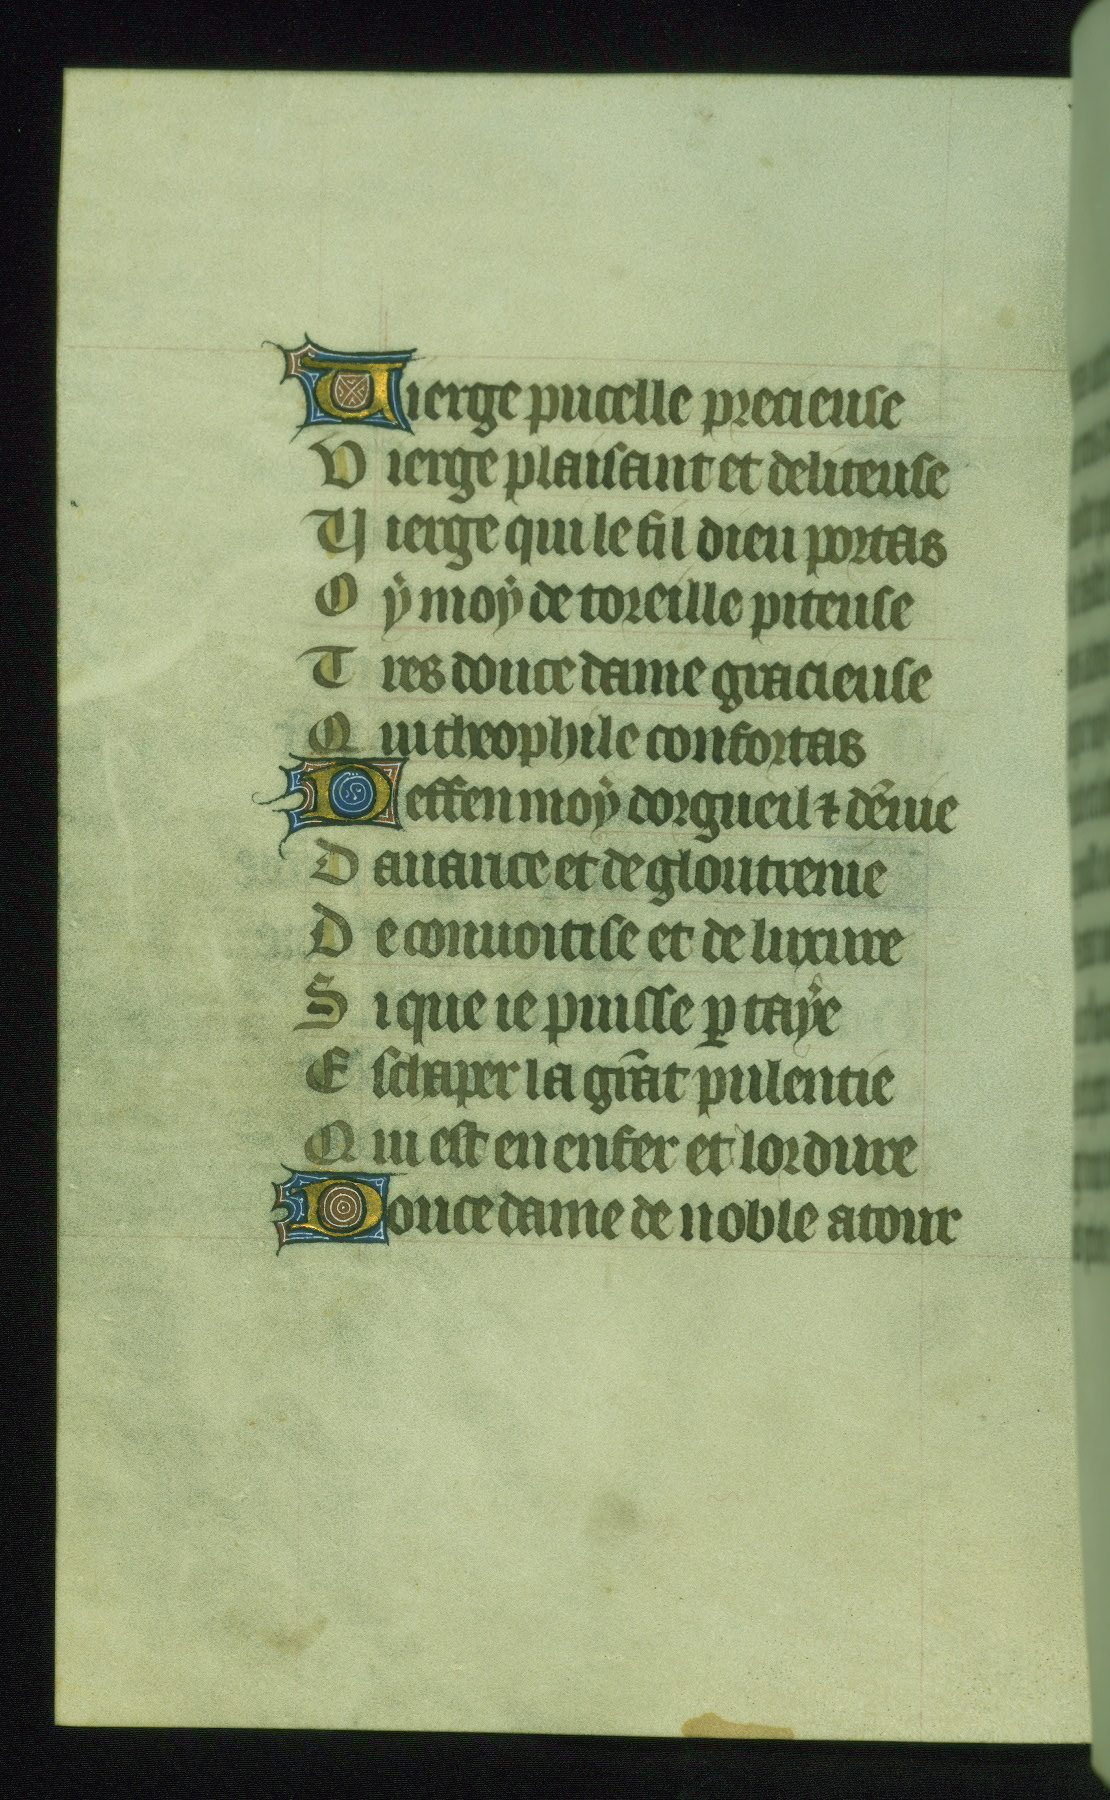 Vierge pucelle precieuse
Vierge plaisant et deliteuse
Vierge qui le fil dieu portas
Oÿ moÿ de toreille piteuse
Tres douce dame gracieuse
Qui theophile confortas
Deffen moÿ dorgueil ⁊ dēuie
Dauarice et de gloutrenie
De conuoitise et de luxure
Si que ie puisse ꝑ taÿe
Eschaper la grāt pulentie
Qui est en enfer et lordure
Douce dame de noble atour